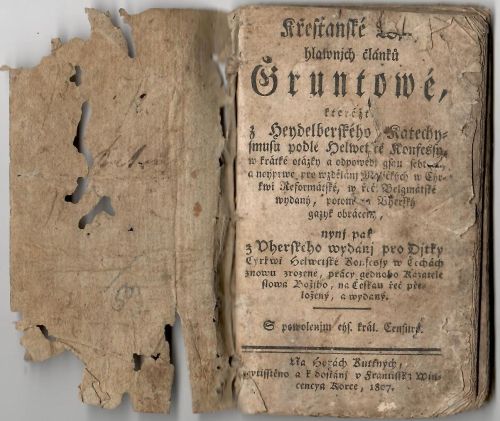 Křesťanské
hlawnjch článků
Gruntowé,
kteréžt
z Heydelberského Katechy-
smusu podle Helwetské Konfessy,
w krátké otázky a odpowědi gsau sebr
a neyprwé pro wzdělánj Malických w Cýr-
kwi Reformátské, w řeč Belgmátské
wydaný, potom Vherský
gazyk obrácen,
nynj pak
z Vherského wydanj pro Djtky
Cýrkwi Helwetské Konfessy w Čechách
znowu zrozené, prácy gednoho Kazatele
slowa Božjho, na Českau řeč pře-
ložený, a wydaný.
S powolenjm cýs. král. Censury.
Na Horách Kuttných,
wytisstěno a k dostánj v Frantisska Win-
cencya Korce, 1807.